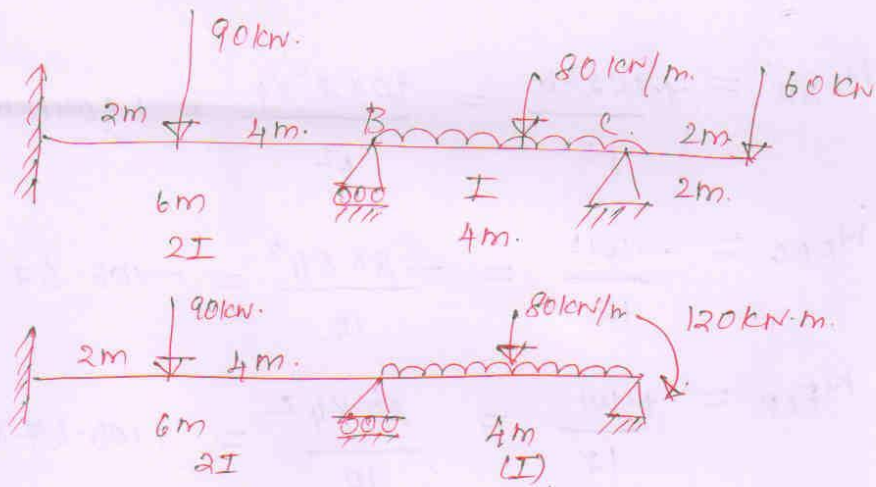 90kN.
80kN/m.
60KN
2m 4m. B C. 2m
6m I 2m.
2I 4m.
90kN. 80kN/m 120KN·m.
2m 4m.
6m 4m
2I (I)